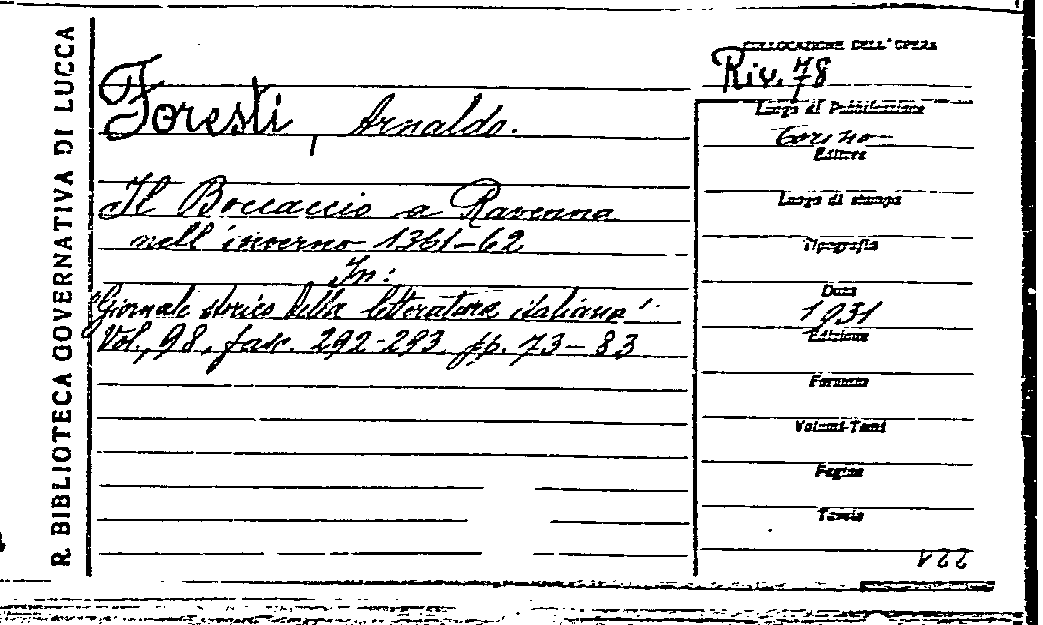 R. BIBLIOTECA GOVERNATIVA DI LUCCA
Foresti, Arnaldo.
Il Boccaccio a Ravenna
nell'inverno 1361-62
In:
"Giornale storico della letteratura italiana"
Vol. 98, fasc. 292-293. pp. 73-83
COLLOCAZIONE DELL'OPERA
Riv. 78
Luogo di Pubblicazione
Torino
Editore
Luogo di stampa
Tipografia
Data
1931
Edizione
Formato
Volumi-Tomi
Pagine
Tavole
221